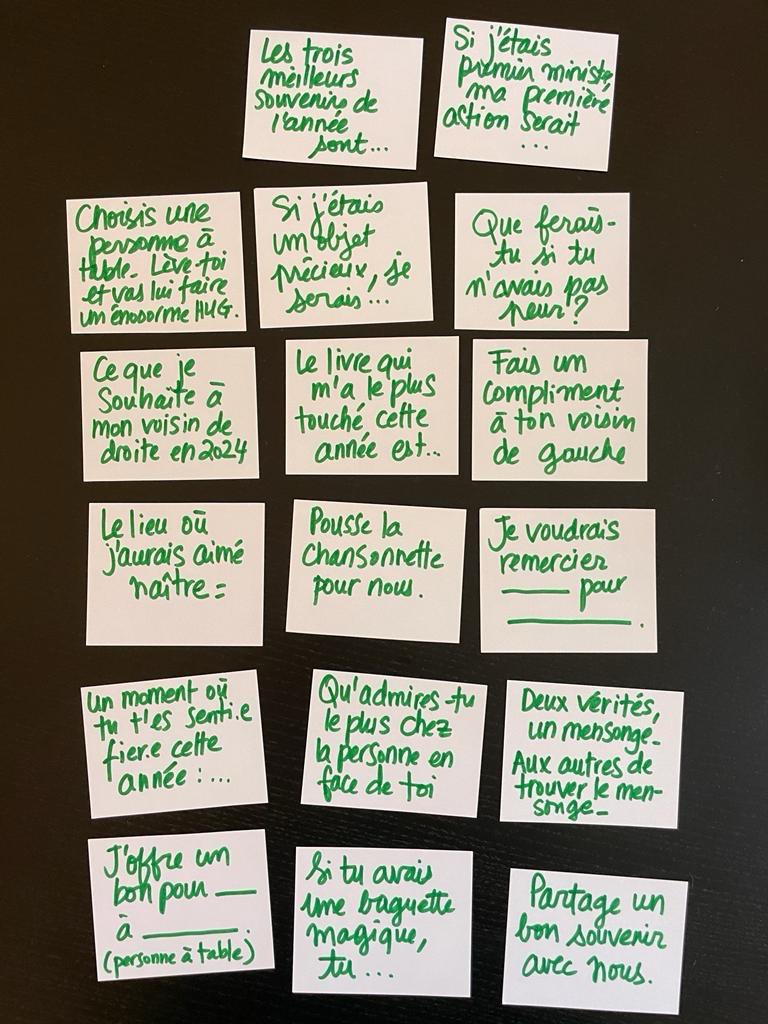 Les trois
meilleurs
souvenirs de
l'année
sont...
Si j'étais
premier ministre,
ma première
action serait
...
Choisis une
personne à
table. Lève-toi
et vas lui faire
un énosorme HUG.
Si j'étais
un objet
précieux, je
serais...
Que ferais-
tu si tu
n'avais pas
peur?
Ce que je
souhaite à
mon voisin de
droite en 2024
Le livre qui
m'a le plus
touché cette
année est...
Fais un
compliment
à ton voisin
de gauche
Le lieu où
j'aurais aimé
naître =
Pousse la
chansonnette
pour nous.
Je voudrais
remercier
____ pour
________.
Un moment où
tu t'es senti.e
fier.e cette
année :...
Qu'admires-tu
le plus chez
la personne en
face de toi
Deux vérités,
un mensonge-
Aux autres de
trouver le men-
songe-
J'offre un
bon pour ___
à ______
(personne à table)
Si tu avais
une baguette
magique,
tu...
Partage un
bon souvenir
avec nous.